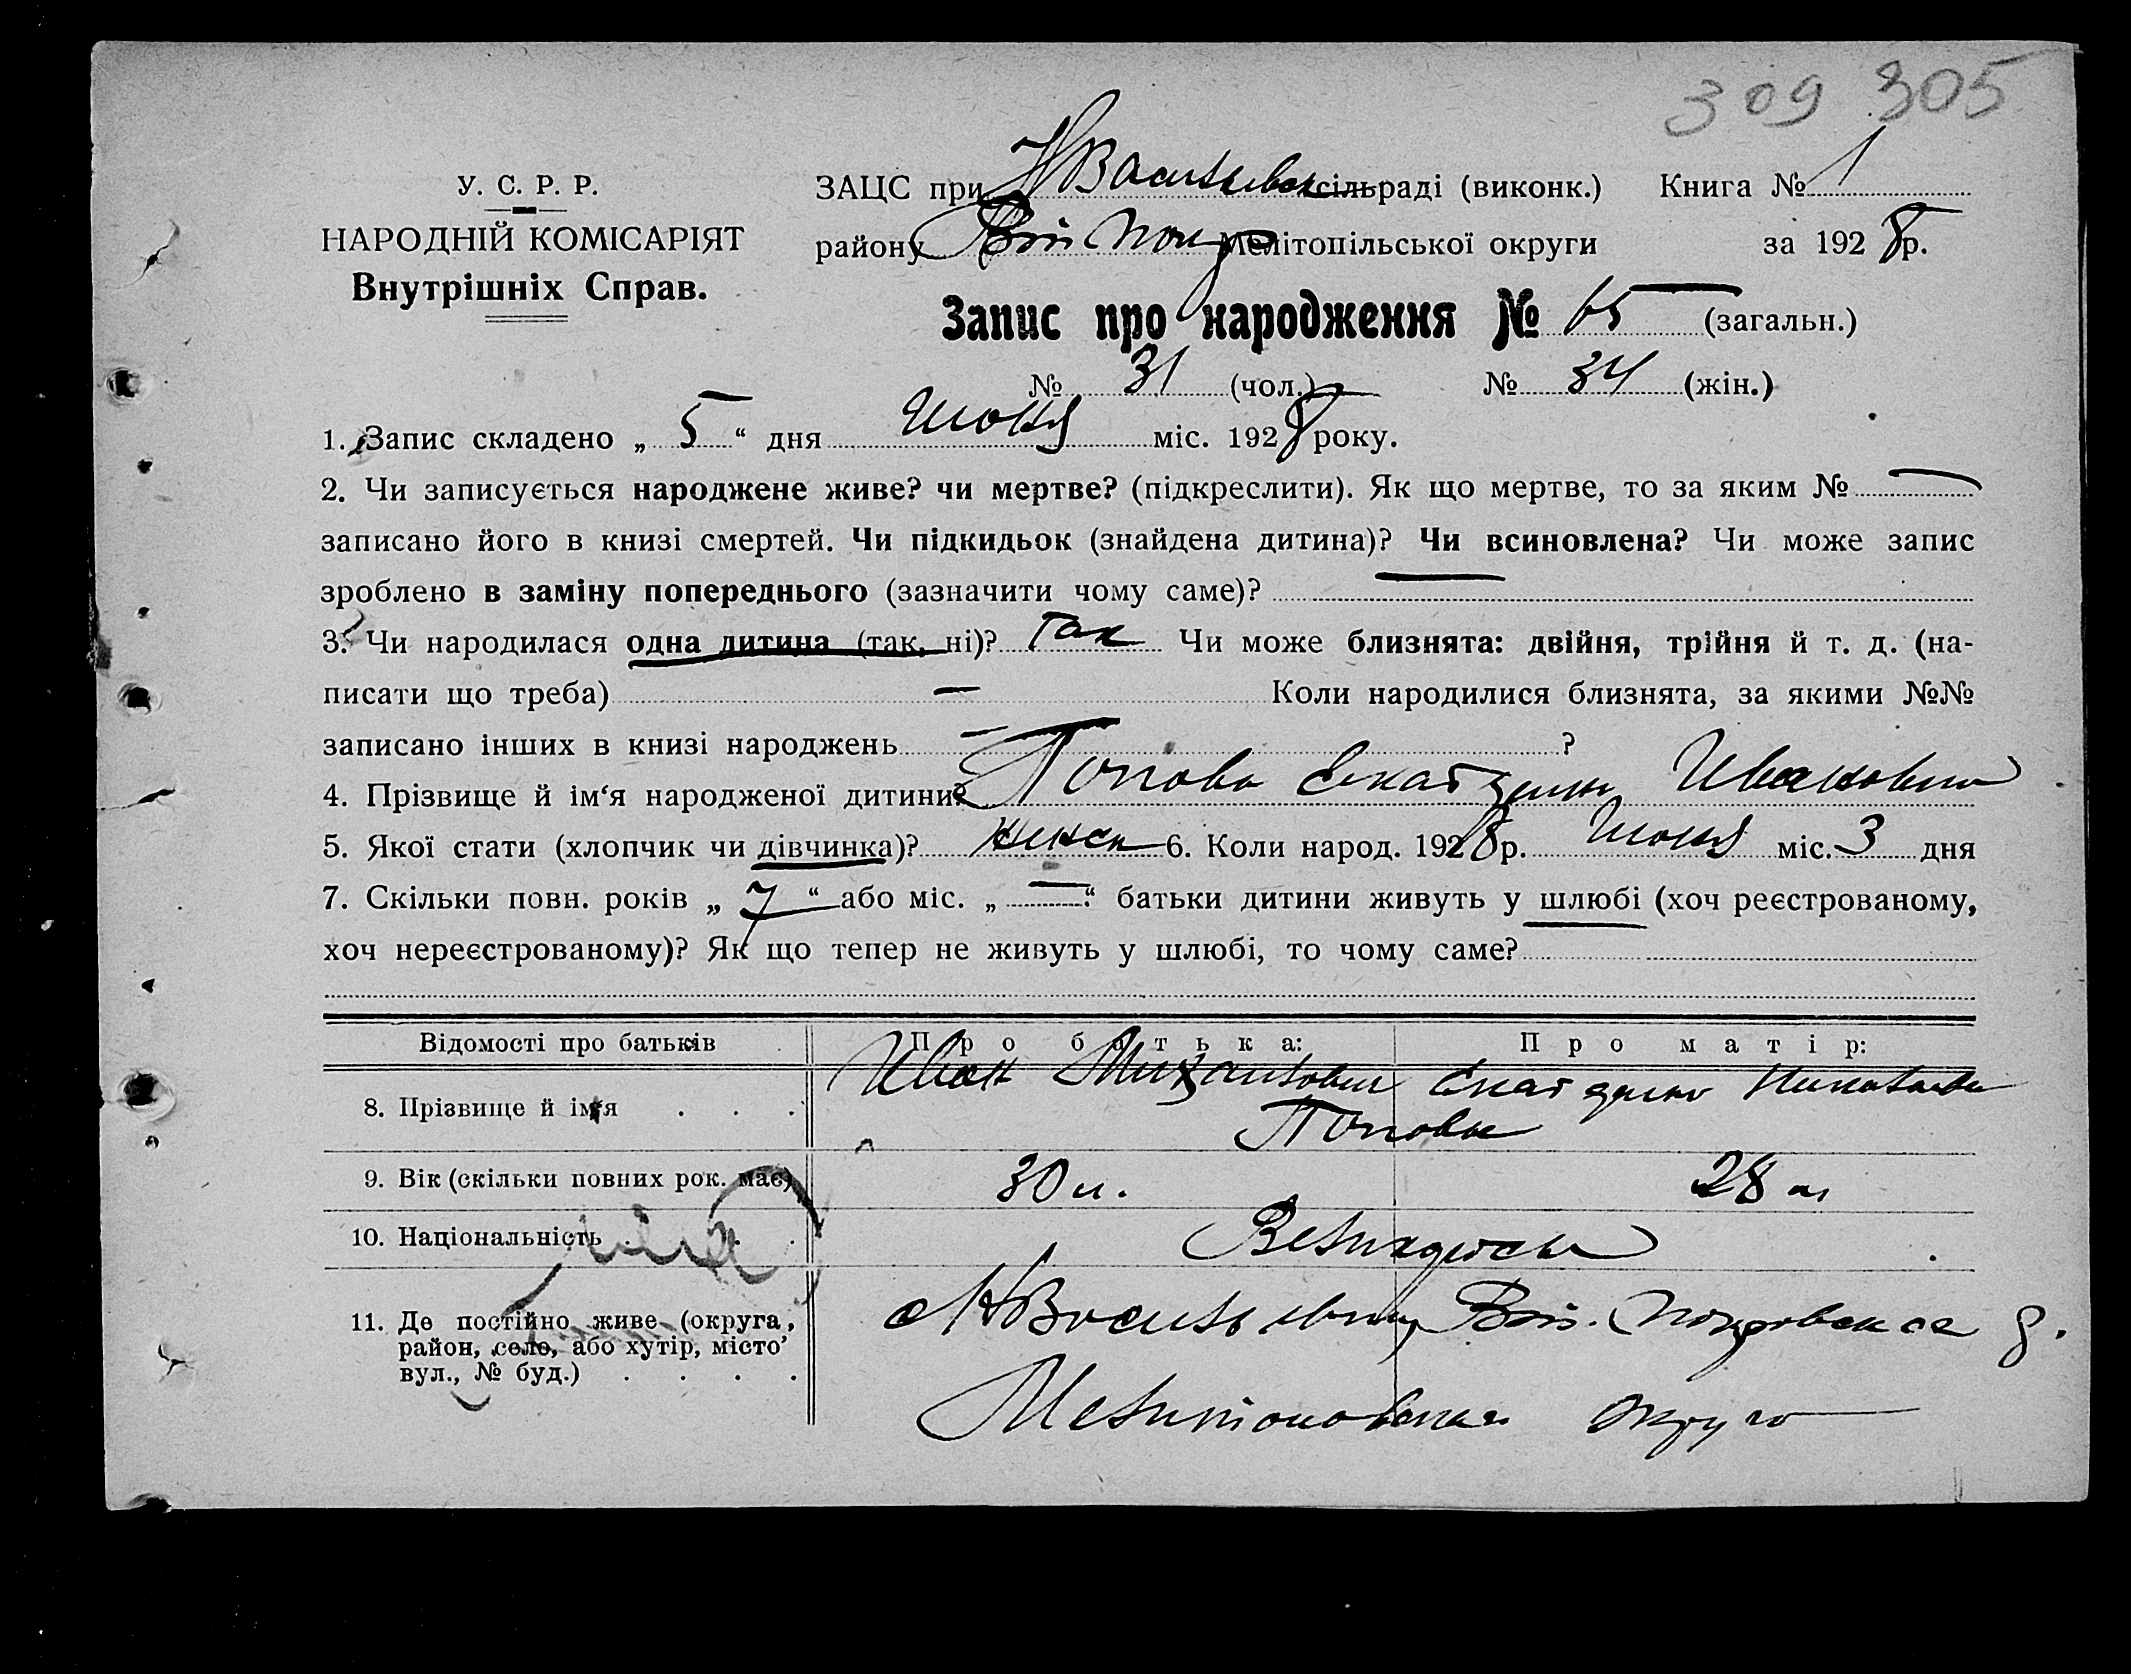 309 305
У. С. Р. Р.
НАРОДНІЙ КОМІСАРІЯТ
Внутрішніх Справ.
ЗАЦС при НВасильевск сільраді (виконк.) Книга № 1
району Вт Покр Мелітопільської округи за 1928 р.
Запис про народження № 65 (загальн.)
№ 31 (чол.) № 34 (жін.)
1. Запис складено „ 5 “ дня Июня міс. 1928 року.
2. Чи записується народжене живе? чи мертве? (підкреслити). Як що мертве, то за яким № —
записано його в книзі смертей. Чи підкидьок (знайдена дитина)? Чи всиновлена? Чи може запис
зроблено в заміну попереднього (зазначити чому саме)?
3. Чи народилася одна дитина (так, ні)? Так Чи може близнята: двійня, трійня й т. д. (на-
писати що треба) — Коли народилися близнята, за якими №№
записано інших в книзі народжень — ?
4. Прізвище й ім‘я народженої дитини? Попова Екатерина Ивановна
5. Якої стати (хлопчик чи дівчинка)? женск 6. Коли народ. 1928 р. Июня міс. 3 дня
7. Скільки повн. років „ 7 “ або міс. „ — “ батьки дитини живуть у шлюбі (хоч реєстрованому,
хоч нереєстрованому)? Як що тепер не живуть у шлюбі, то чому саме?
Відомості про батьків Про батька: Про матір:
8. Прізвище й ім‘я . . . Иван Михайлович Екатерина Николаевна
Поповы
9. Вік (скільки повних рок. має) 30 л. 28 л
10. Національність . . . .
11. Де постійно живе (округа,
район, село, або хутір, місто’
вул., № буд.) . . . .
с НВасильевка Вт. Покровская р.
Мелитопольская округа